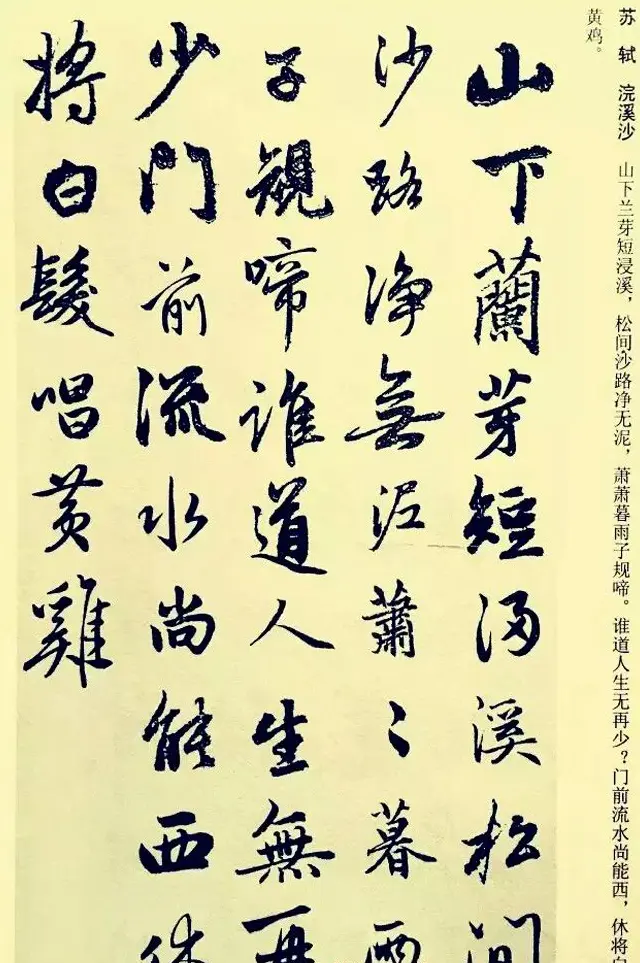 苏 轼 浣溪沙 山下兰芽短浸溪，松间沙路净无泥，萧萧暮雨子规啼。谁道人生无再少？门前流水尚能西，休将白
黄鸡。
山下蘭芽短浸溪松間
沙路净無泥蕭〻暮雨
子規啼誰道人生無再
少門前流水尚能西休
將白髮唱黄雞